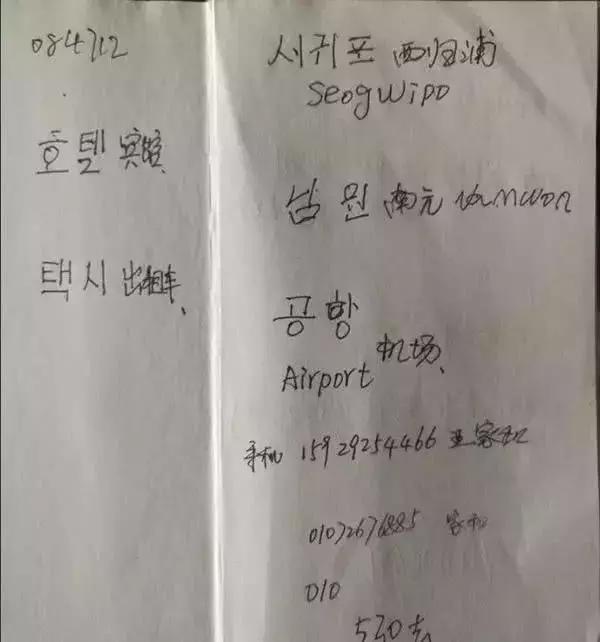 084712
호텔 宾馆
택시 出租车、
서귀포 西归浦
Seogwipo
남원 南元 Namwon
공항
Airport 机场、
手机 15929254466 王家和
01072676885 家和
010